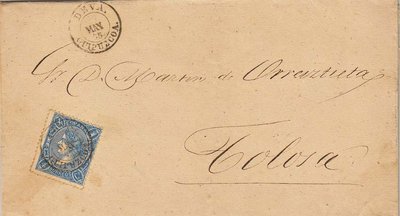 DEVA.
MAY
GUIPUZCOA.
Sr. D. Martin de Orraztuta
Tolosa